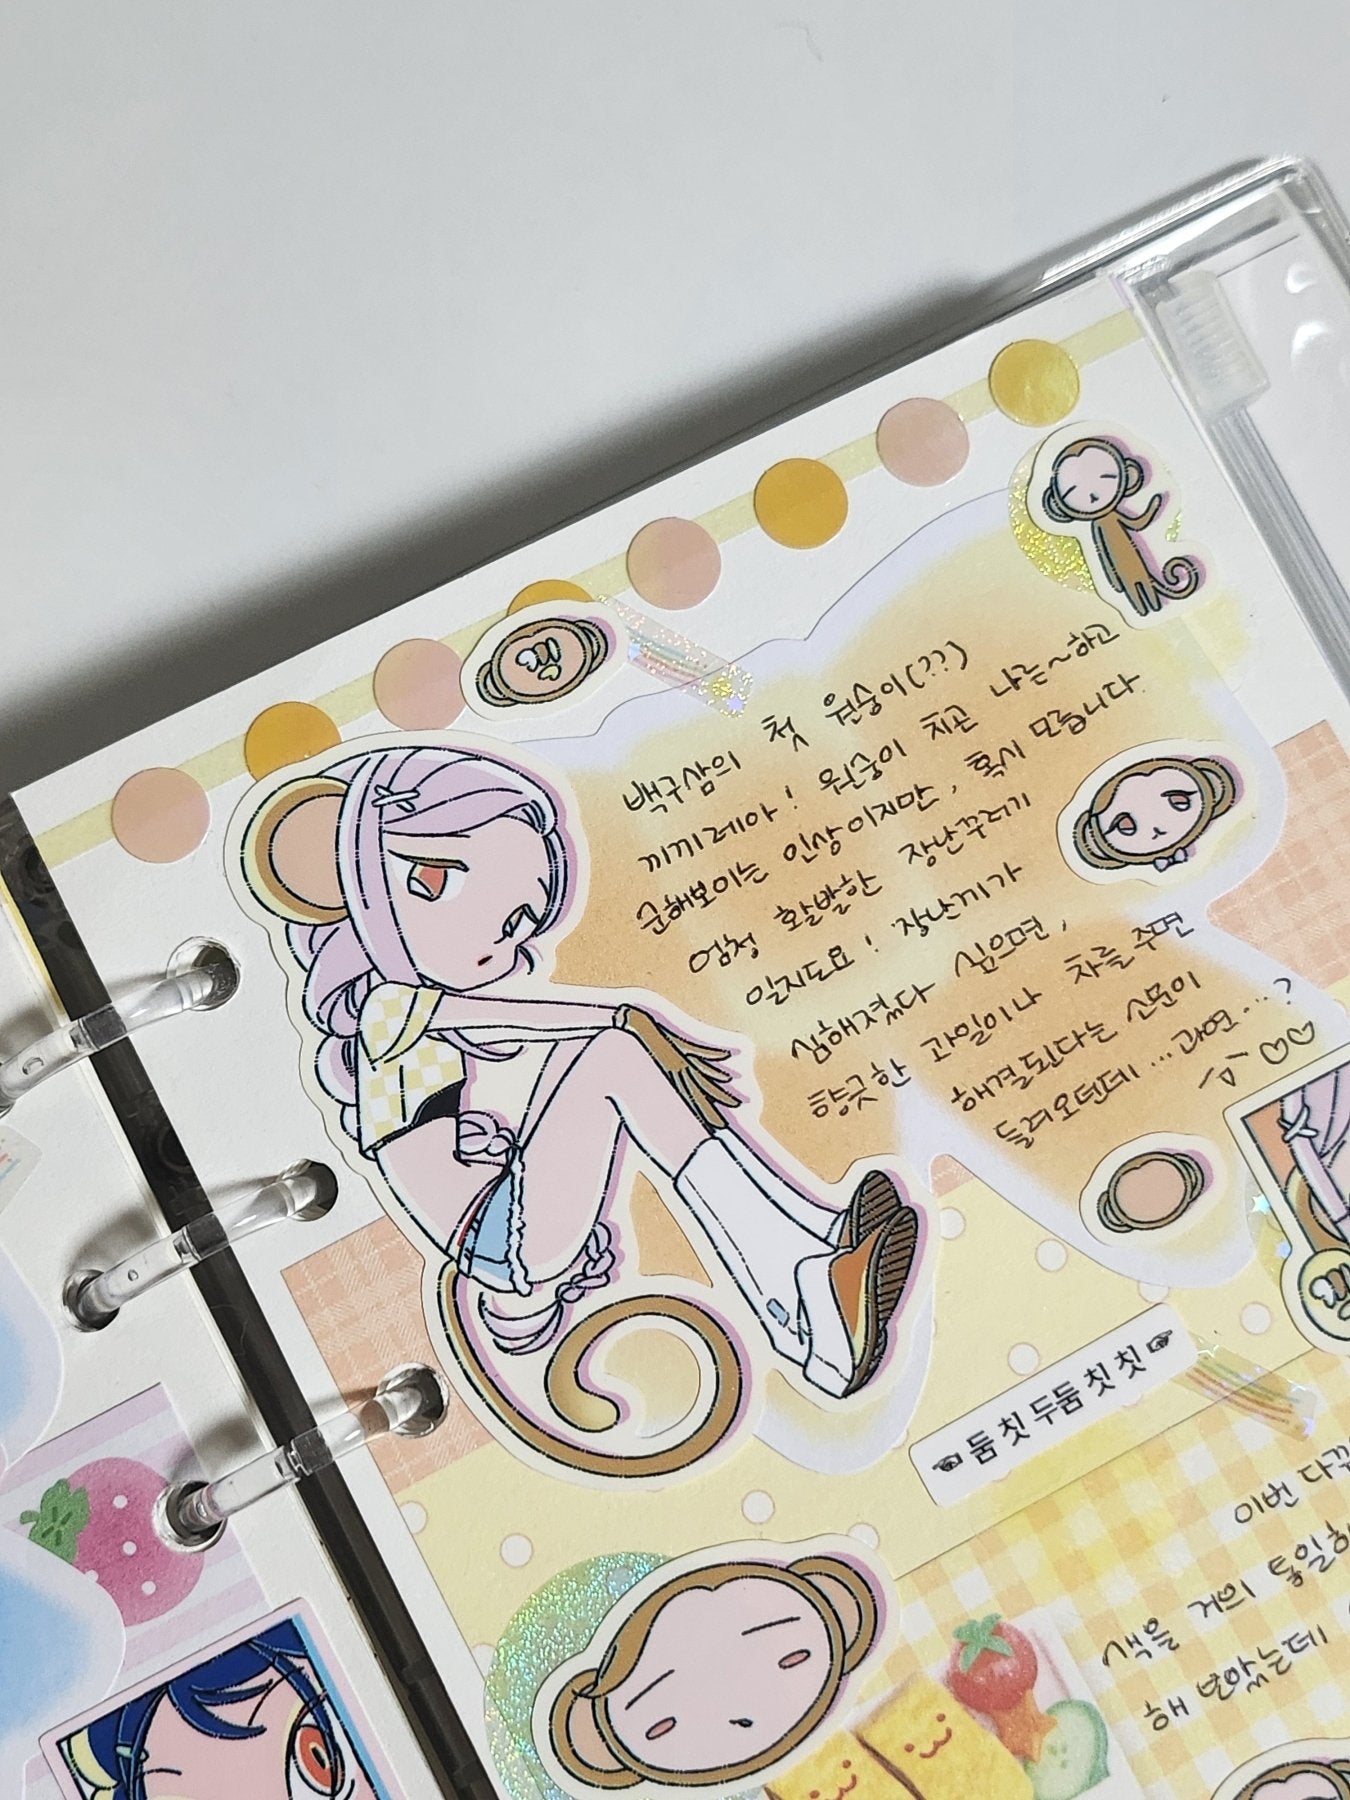 백구삼의 첫 원숭이(??)
끼끼레아! 원숭이 치곤 나른~하고
순해보이는 인상이지만, 혹시 모릅니다.
엄청 활발한 장난꾸러기
일지도요! 장난끼가
심해졌다 싶으면,
향긋한 과일이나 차를 주면
해결된다는 소문이
들려오던데...과연...?
☜ 둠칫두둠칫칫 ☞
이번 다꾸
색을 거의 통일해
해 보았는데